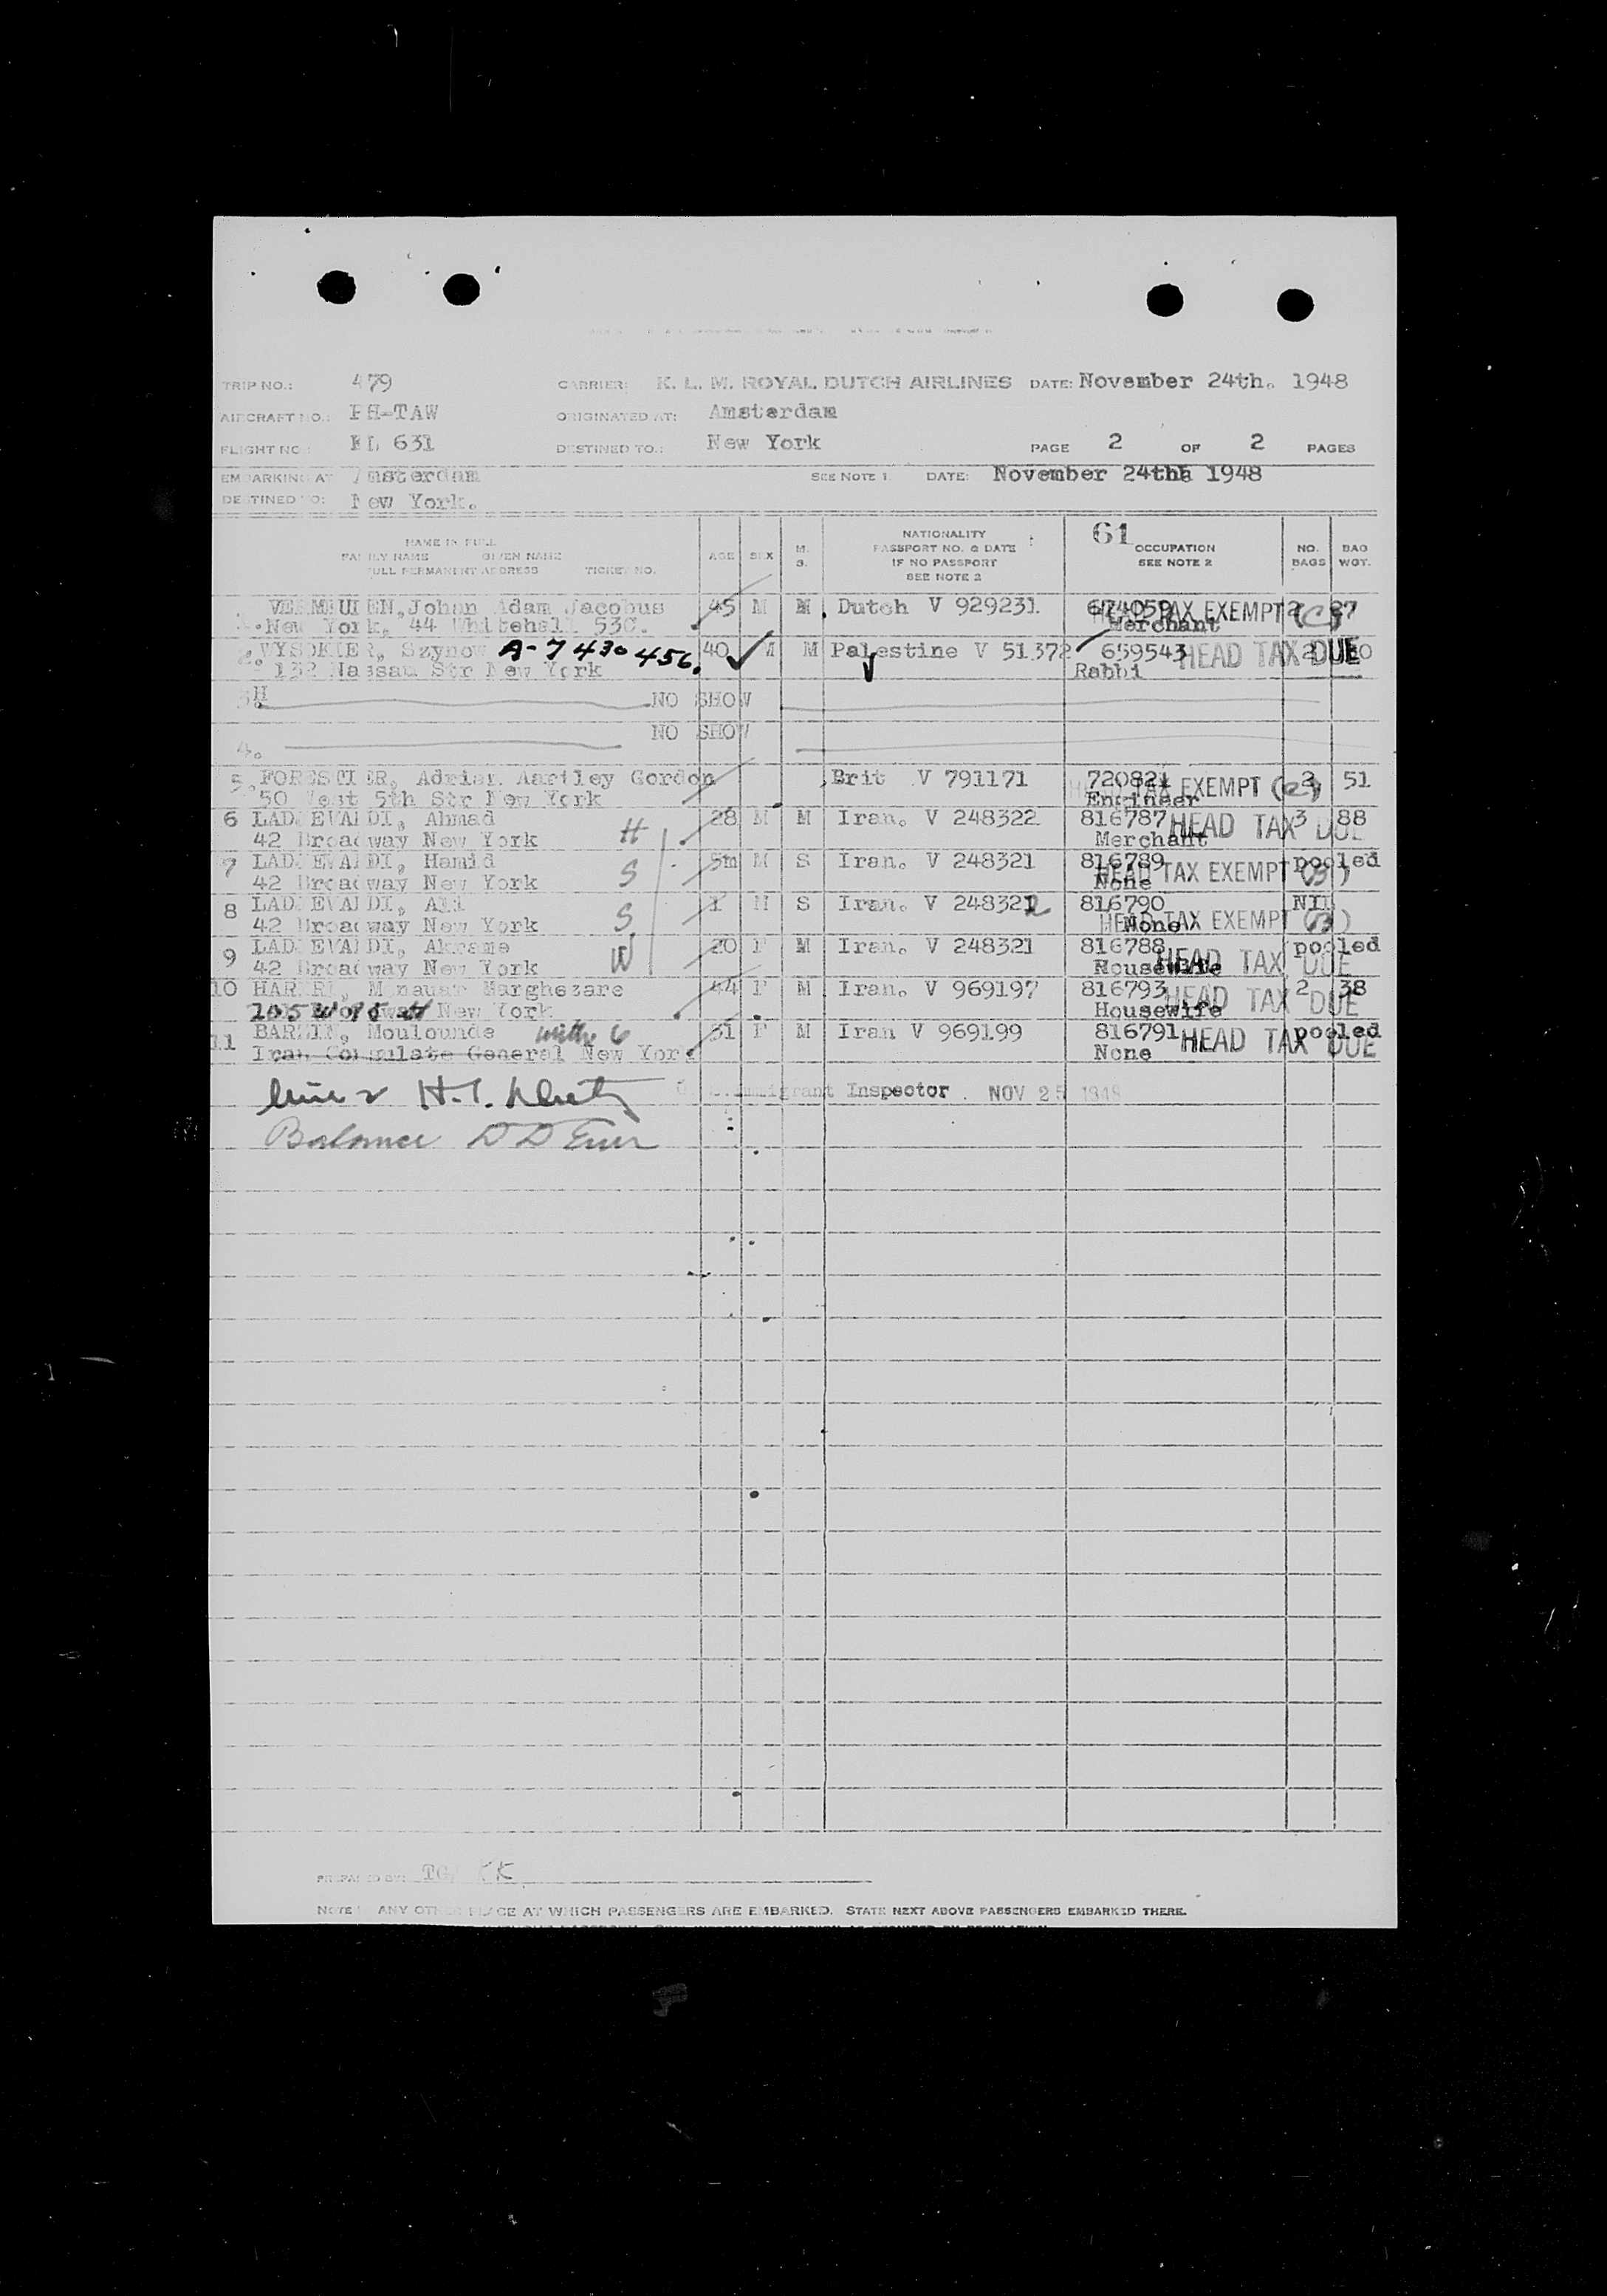 TRIP NO.: 479 CARRIER: K. L. M. ROYAL DUTCH AIRLINES DATE: November 24th. 1948
AIRCRAFT NO.: PH-TAW ORIGINATED AT: Amsterdam
FLIGHT NO.: KL 631 DESTINED TO.: New York PAGE 2 OF 2 PAGES
EMBARKING AT Amsterdam SEE NOTE 1 DATE: November 24th 1948
DESTINED TO: New York.
61
NAME IN FULL
FAMILY NAME GIVEN NAME
FULL PERMANENT ADDRESS TICKET NO.
AGE SEX M. S.
NATIONALITY
PASSPORT NO. & DATE
IF NO PASSPORT
SEE NOTE 2
OCCUPATION
SEE NOTE 2
NO. BAGS
BAG WGT.
VERMEULEN, Johan Adam Jacobus 45 M M Dutch V 929231 674059 TAX EXEMPT (C) 2
New York, 44 Whitehall 530. Merchant
2. WYSOKIER, A-7 430 456 40 M M Palestine V 51372 659543 HEAD TAX DUE 2
132 Nassau Str New York Rabbi
3. NO SHOW
4. NO SHOW
5. FORESTIER, Adrian Gordon Brit V 791171 720821 TAX EXEMPT 2 51
50 West 5th Str New York Engineer
6 LADJEVARDI, Ahmad H 28 M M Iran. V 248322 816787 HEAD TAX DUE 3 88
42 Broadway New York Merchant
7 LADJEVARDI, Hamid S 5m M S Iran. V 248321 816789 HEAD TAX EXEMPT (B) pooled
42 Broadway New York None
8 LADJEVARDI, Ali S 1 M S Iran. V 248322 816790 HEAD TAX EXEMPT (B) NIL
42 Broadway New York None
9 LADJEVARDI, Akrame W 20 F M Iran. V 248321 816788 HEAD TAX DUE pooled
42 Broadway New York Housewife
10 HARIRI, Monauar Marghezare 44 F M Iran. V 969197 816793 HEAD TAX DUE 2 38
205 W 95 st New York Housewife
11 BARZIN, Moulounde with 6 51 F M Iran V 969199 816791 HEAD TAX DUE pooled
Iran Consulate General New York None
H.T. Immigrant Inspector NOV 25 1948
Balance
PREPARED BY: TG KK
NOTE 1 ANY OTHER PLACE AT WHICH PASSENGERS ARE EMBARKED. STATE NEXT ABOVE PASSENGERS EMBARKED THERE.